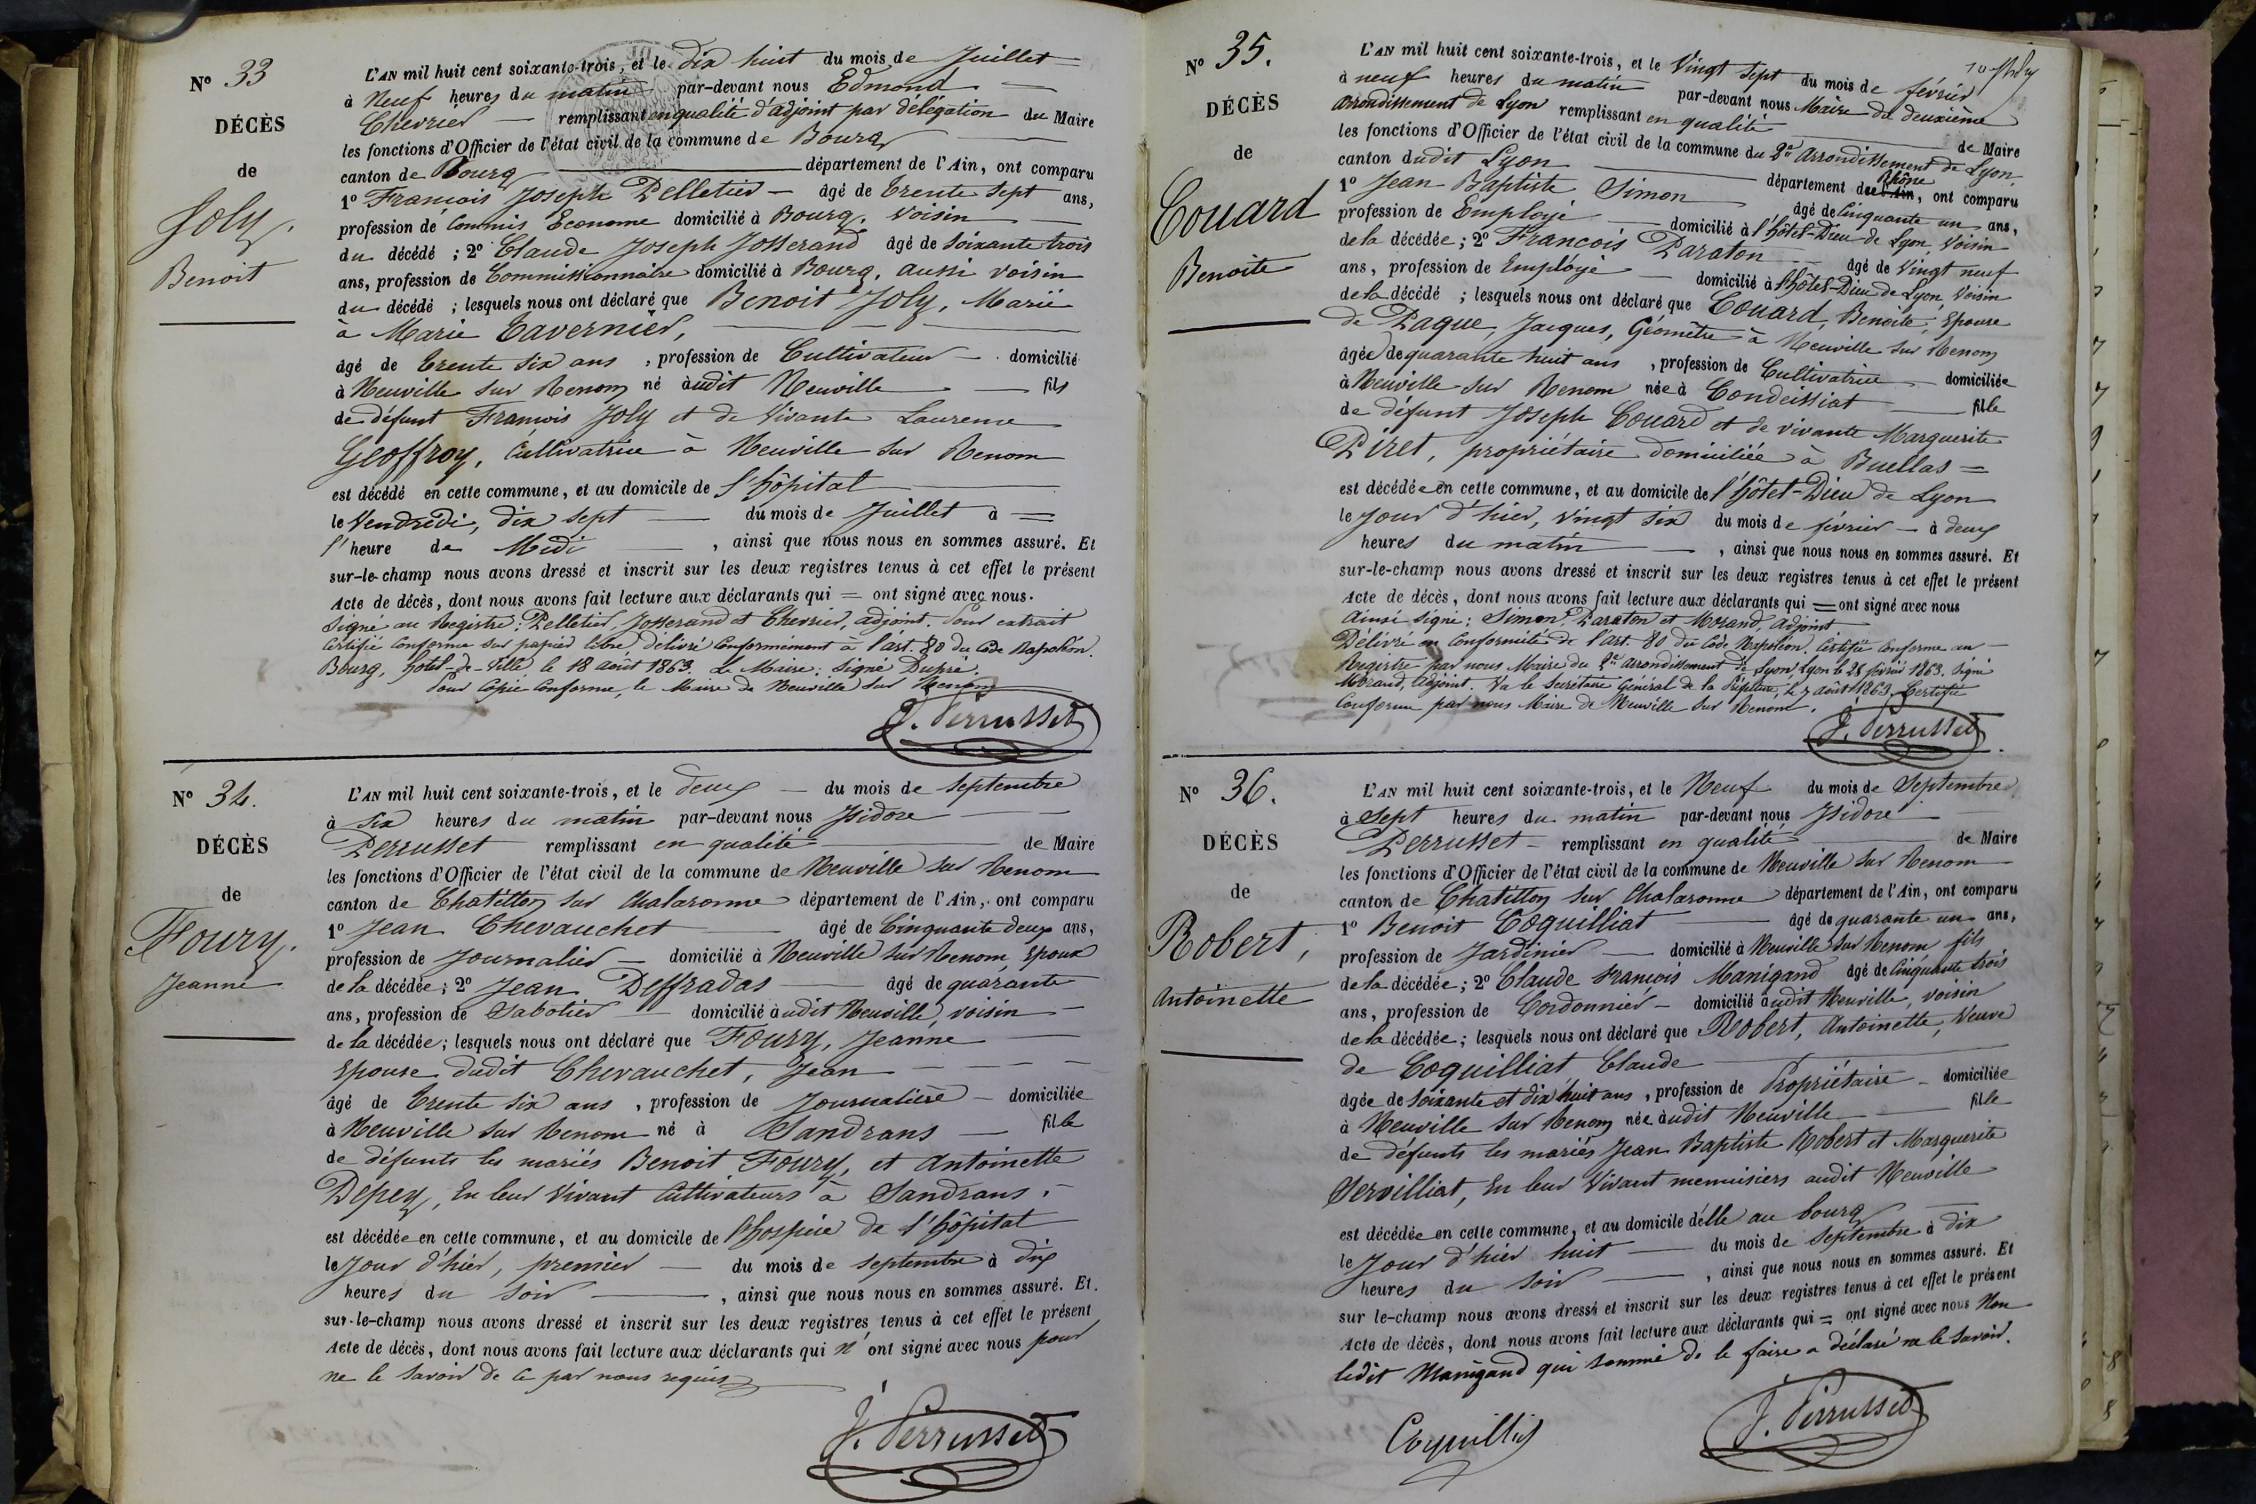 N° 33
DÉCÈS
de
Joly,
Benoit
L'AN mil huit cent soixante-trois, et le dix huit du mois de Juillet
à Neuf heures du matin par-devant nous Edmond
Chevrier remplissant en qualité d'adjoint par délégation du Maire
les fonctions d'Officier de l'état civil de la commune de Bourg
canton de Bourg département de l'Ain, ont comparu
1° François Joseph Pelletier âgé de trente sept ans,
profession de Commis Econome domicilié à Bourg, voisin
du décédé ; 2° Claude Joseph Josserand âgé de soixante trois
ans, profession de Commissionnaire domicilié à Bourg, aussi voisin
du décédé ; lesquels nous ont déclaré que Benoit Joly, Marié
à Marie Tavernier,
âgé de trente six ans, profession de Cultivateur domicilié
à Neuville sur Renom né audit Neuville fils
de défunt François Joly et de vivante Laurence
Geoffroy, Cultivatrice à Neuville sur Renom
est décédé en cette commune, et au domicile de l'hôpital
le Vendredi, dix sept du mois de Juillet à =
l'heure de Midi, ainsi que nous nous en sommes assuré. Et
sur-le-champ nous avons dressé et inscrit sur les deux registres tenus à cet effet le présent
Acte de décès, dont nous avons fait lecture aux déclarants qui = ont signé avec nous.
Signé au Registre : Pelletier, Josserand et Chevrier, adjoint. Pour extrait
Certifié Conforme sur papier libre délivré Conformément à l'art. 80 du Code Napoléon.
Bourg, hôtel-de-Ville le 18 août 1863. Le Maire : signé Dupré.
Pour Copie Conforme, le Maire de Neuville sur Renom
J. Perrusset
N° 34.
DÉCÈS
de
Foury,
Jeanne
L'AN mil huit cent soixante-trois, et le deux du mois de septembre
à six heures du matin par-devant nous Isidore
Perrusset remplissant en qualité de Maire
les fonctions d'Officier de l'état civil de la commune de Neuville sur Renom
canton de Chatillon sur Chalaronne département de l'Ain, ont comparu
1° Jean Chevauchet âgé de Cinquante deux ans,
profession de Journalier domicilié à Neuville sur Renom, Epoux
de la décédée ; 2° Jean Deffradas âgé de quarante
ans, profession de Sabotier domicilié audit Neuville, voisin
de la décédée ; lesquels nous ont déclaré que Foury, Jeanne
Epouse dudit Chevauchet, Jean
âgé de trente six ans, profession de Journalière domiciliée
à Neuville sur Renom né à Sandrans fille
de défunts les mariés Benoit Foury, et Antoinette
Depey, En leur Vivant Cultivateurs à Sandrans,
est décédée en cette commune, et au domicile de l'hospice de l'hôpital
le Jour d'hier, premier du mois de septembre à dix
heures du soir, ainsi que nous nous en sommes assuré. Et
sur-le-champ nous avons dressé et inscrit sur les deux registres tenus à cet effet le présent
Acte de décès, dont nous avons fait lecture aux déclarants qui n'ont signé avec nous pour
ne le savoir de ce par nous requis
J. Perrusset
N° 35.
DÉCÈS
de
Couard
Benoite
L'AN mil huit cent soixante-trois, et le Vingt sept du mois de février
à neuf heures du matin par-devant nous Maire du deuxième
arrondissement de Lyon remplissant en qualité de Maire
les fonctions d'Officier de l'état civil de la commune du 2e Arrondissement de Lyon
canton dudit Lyon département du Rhône, ont comparu
1° Jean Baptiste Simon âgé de Cinquante un ans,
profession de Employé domicilié à l'hôtel-Dieu de Lyon Voisin
de la décédée ; 2° François Paraton âgé de Vingt neuf
ans, profession de Employé domicilié à l'hôtel-Dieu de Lyon, Voisin
de la décédé ; lesquels nous ont déclaré que Couard, Benoite, Epouse
de Paque, Jacques, Géomètre à Neuville sur Renom
âgée de quarante huit ans, profession de Cultivatrice domiciliée
à Neuville sur Renom née à Condeissiat fille
de défunt Joseph Couard et de vivante Marguerite
Piret, propriétaire domiciliée à Buellas =
est décédée en cette commune, et au domicile de l'hôtel-Dieu de Lyon
le Jour d'hier, vingt six du mois de février à deux
heures du matin, ainsi que nous nous en sommes assuré. Et
sur-le-champ nous avons dressé et inscrit sur les deux registres tenus à cet effet le présent
Acte de décès, dont nous avons fait lecture aux déclarants qui = ont signé avec nous
Ainsi signé : Simon, Paraton et Morand, adjoint
Délivré en Conformité de l'art. 80 du Code Napoléon. Certifié Conforme au
Registre par nous Maire du 2e arrondissement de Lyon, Lyon le 28 février 1863. Signé
Morand, adjoint. Vu le Secrétaire Général de la Préfecture, le 7 août 1863. Certifié
Conforme par nous Maire de Neuville sur Renom.
J. Perrusset
N° 36.
DÉCÈS
de
Robert,
Antoinette
L'AN mil huit cent soixante-trois, et le Neuf du mois de Septembre
à Sept heures du matin par-devant nous Isidore
Perrusset remplissant en qualité de Maire
les fonctions d'Officier de l'état civil de la commune de Neuville sur Renom
canton de Chatillon sur Chalaronne département de l'Ain, ont comparu
1° Benoit Coquilliat âgé de quarante un ans,
profession de Jardinier domicilié à Neuville sur Renom fils
de la décédée ; 2° Claude François Manigand âgé de Cinquante trois
ans, profession de Cordonnier domicilié audit Neuville, voisin
de la décédée ; lesquels nous ont déclaré que Robert, Antoinette, Veuve
de Coquilliat Claude
âgée de soixante et dix huit ans, profession de Propriétaire domiciliée
à Neuville sur Renom née audit Neuville fille
de défunts les mariés Jean Baptiste Robert et Marguerite
Servilliat, En leur Vivant menuisiers audit Neuville
est décédée en cette commune, et au domicile d'elle au bourg
le Jour d'hier huit du mois de septembre à dix
heures du soir, ainsi que nous nous en sommes assuré. Et
sur le-champ nous avons dressé et inscrit sur les deux registres tenus à cet effet le présent
Acte de décès, dont nous avons fait lecture aux déclarants qui = ont signé avec nous Non
ledit Manigand qui sommé de le faire a déclaré ne le savoir.
Coquilliat
J. Perrusset